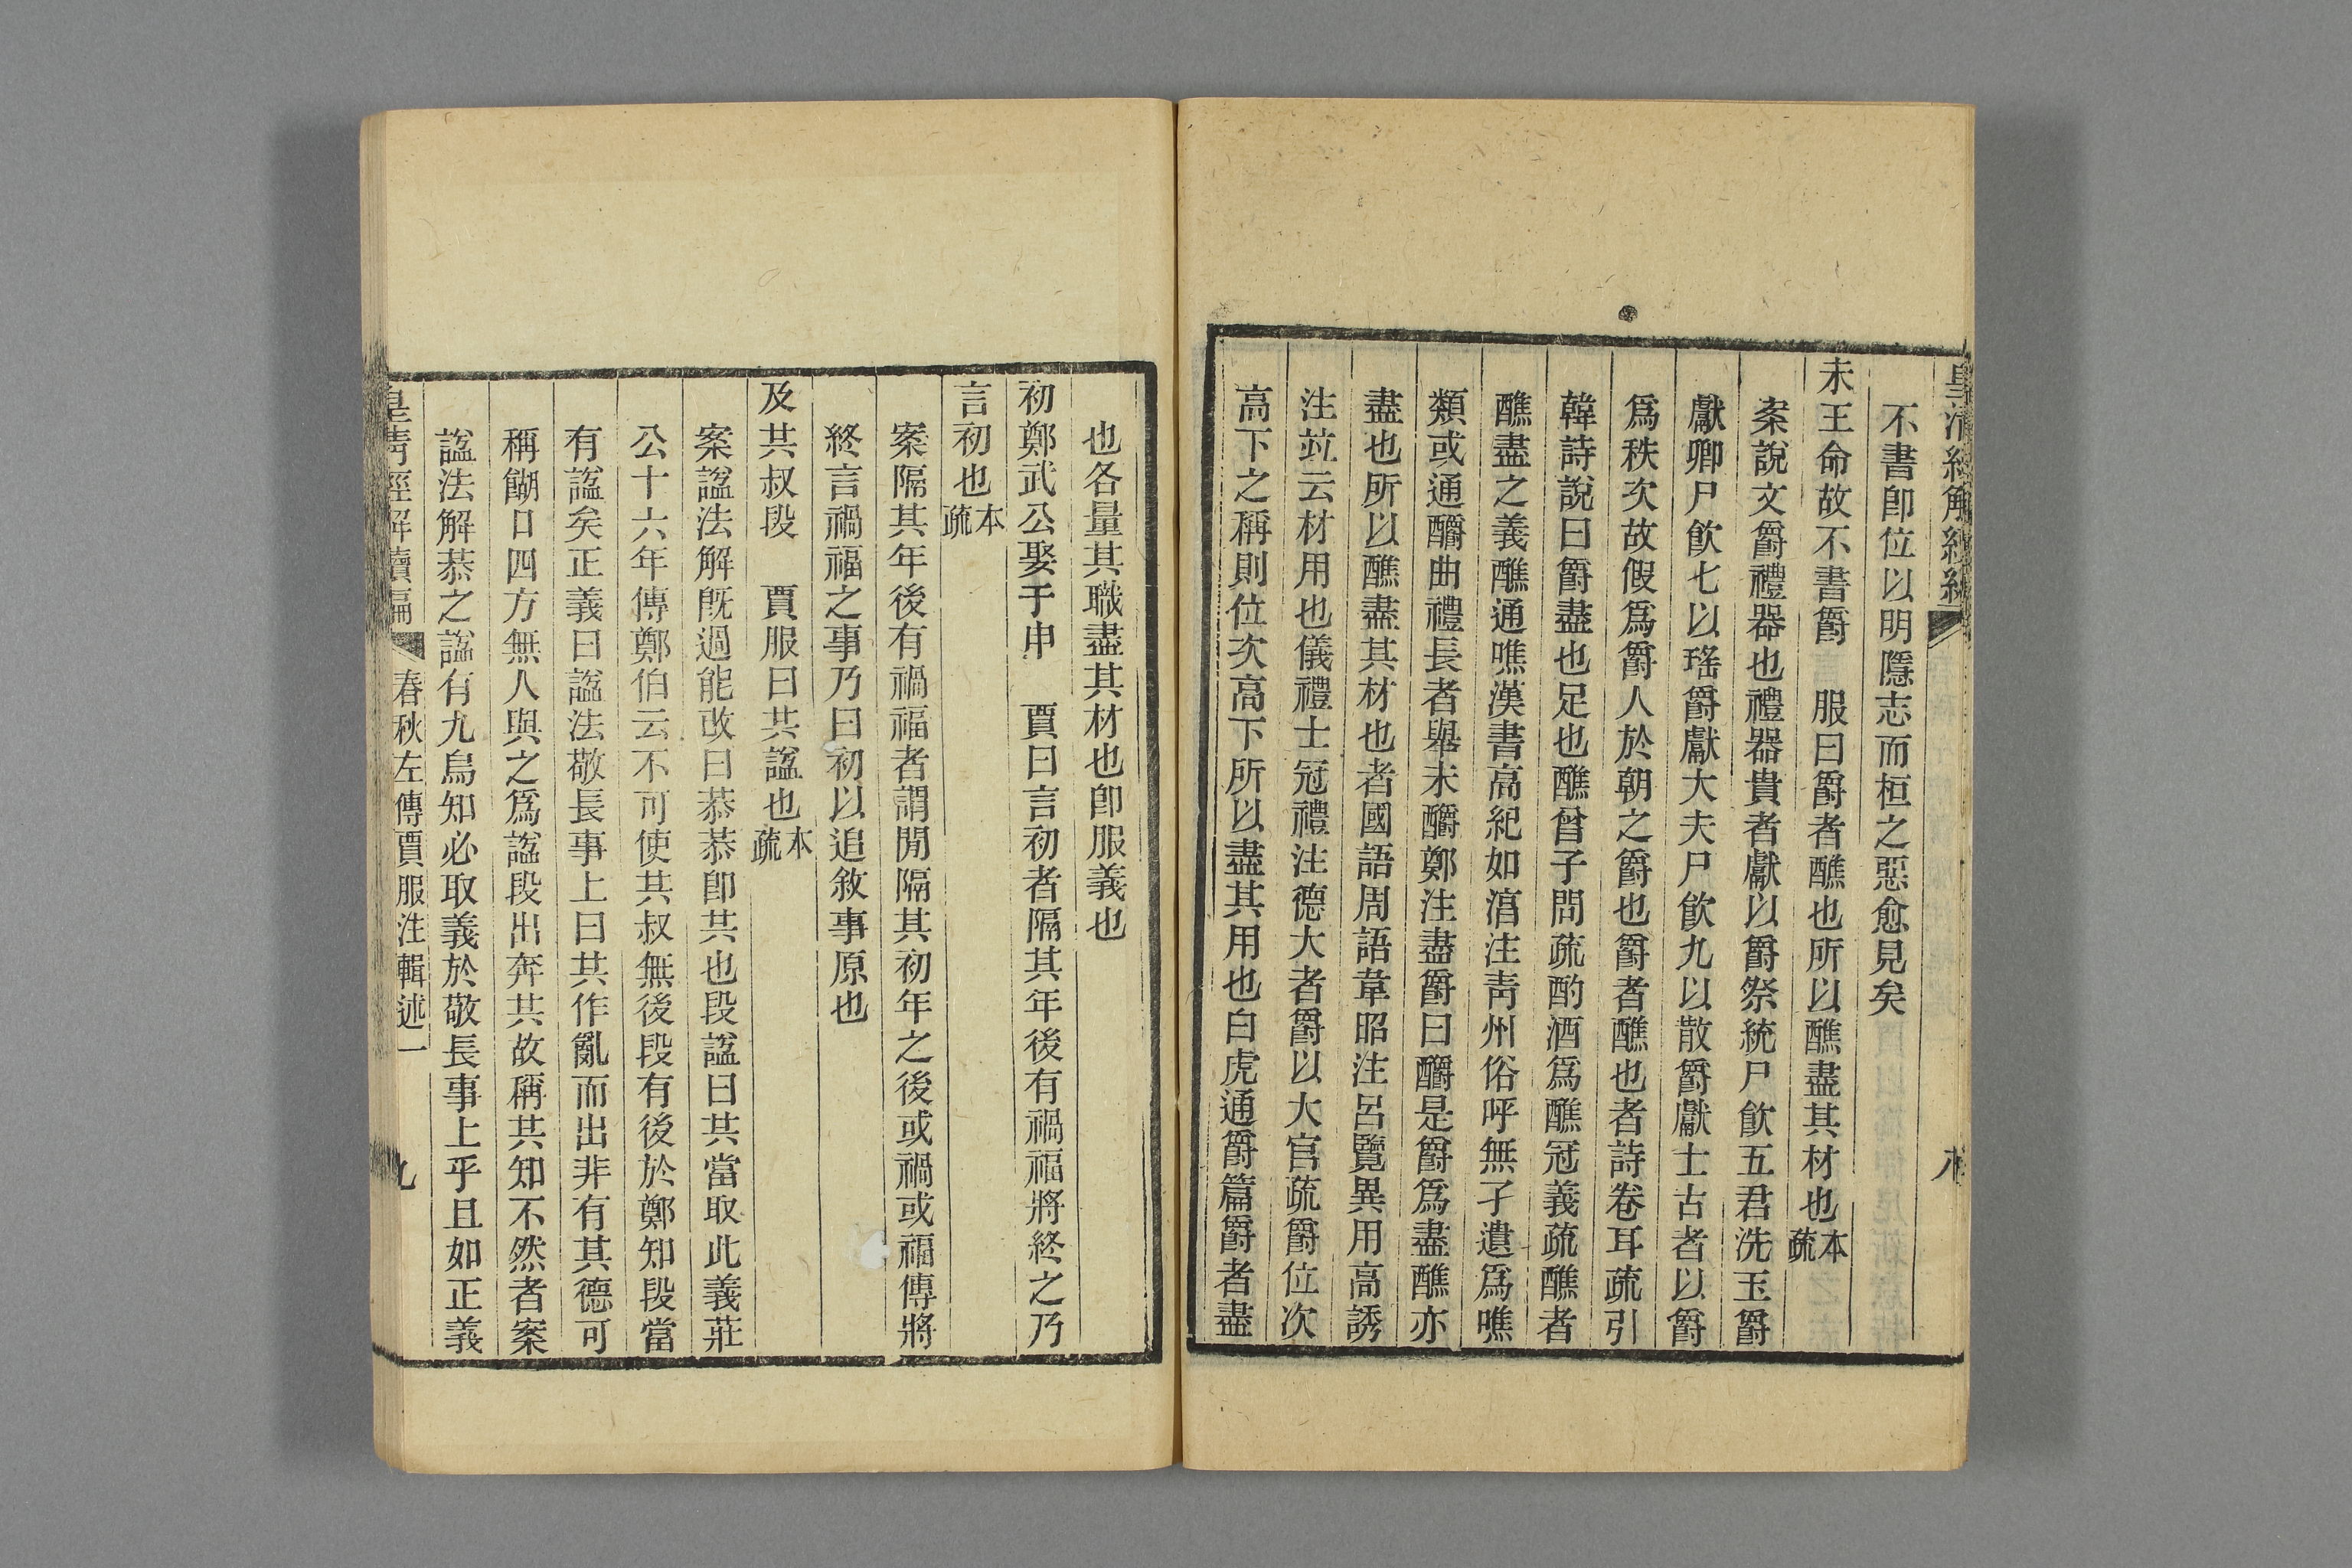 皇清經解續編
八
不書卽位以明隱志而桓之惡愈見矣
未王命故不書爵　服曰爵者醮也所以醮盡其材也本疏
案說文爵禮器也禮器貴者獻以爵祭統尸飮五君洗玉爵
獻卿尸飮七以瑤爵獻大夫尸飮九以散爵獻士古者以爵
爲秩次故假爲爵人於朝之爵也爵者醮也者詩卷耳疏引
韓詩說曰爵盡也足也醮曾子問疏酌酒爲醮冠義疏醮者
醮盡之義醮通噍漢書高紀如湻注靑州俗呼無孑遺爲噍
類或通釂曲禮長者舉未釂鄭注盡爵曰釂是爵爲盡醮亦
盡也所以醮盡其材也者國語周語韋昭注呂覽異用高誘
注竝云材用也儀禮士冠禮注德大者爵以大官疏爵位次
高下之稱則位次高下所以盡其用也白虎通爵篇爵者盡
也各量其職盡其材也卽服義也
初鄭武公娶于申　賈曰言初者隔其年後有禍福將終之乃
言初也本疏
案隔其年後有禍福者謂閒隔其初年之後或禍或福傳將
終言禍福之事乃曰初以追敘事原也
及共叔段　賈服曰共謚也本疏
案謚法解旣過能改曰恭恭卽共也段謚曰共當取此義莊
公十六年傳鄭伯云不可使共叔無後段有後於鄭知段當
有謚矣正義曰謚法敬長事上曰共作亂而出非有其德可
稱餬口四方無人與之爲謚段出奔共故稱共知不然者案
謚法解恭之謚有九烏知必取義於敬長事上乎且如正義
皇靑經解續編
春秋左傳賈服注輯述一
九